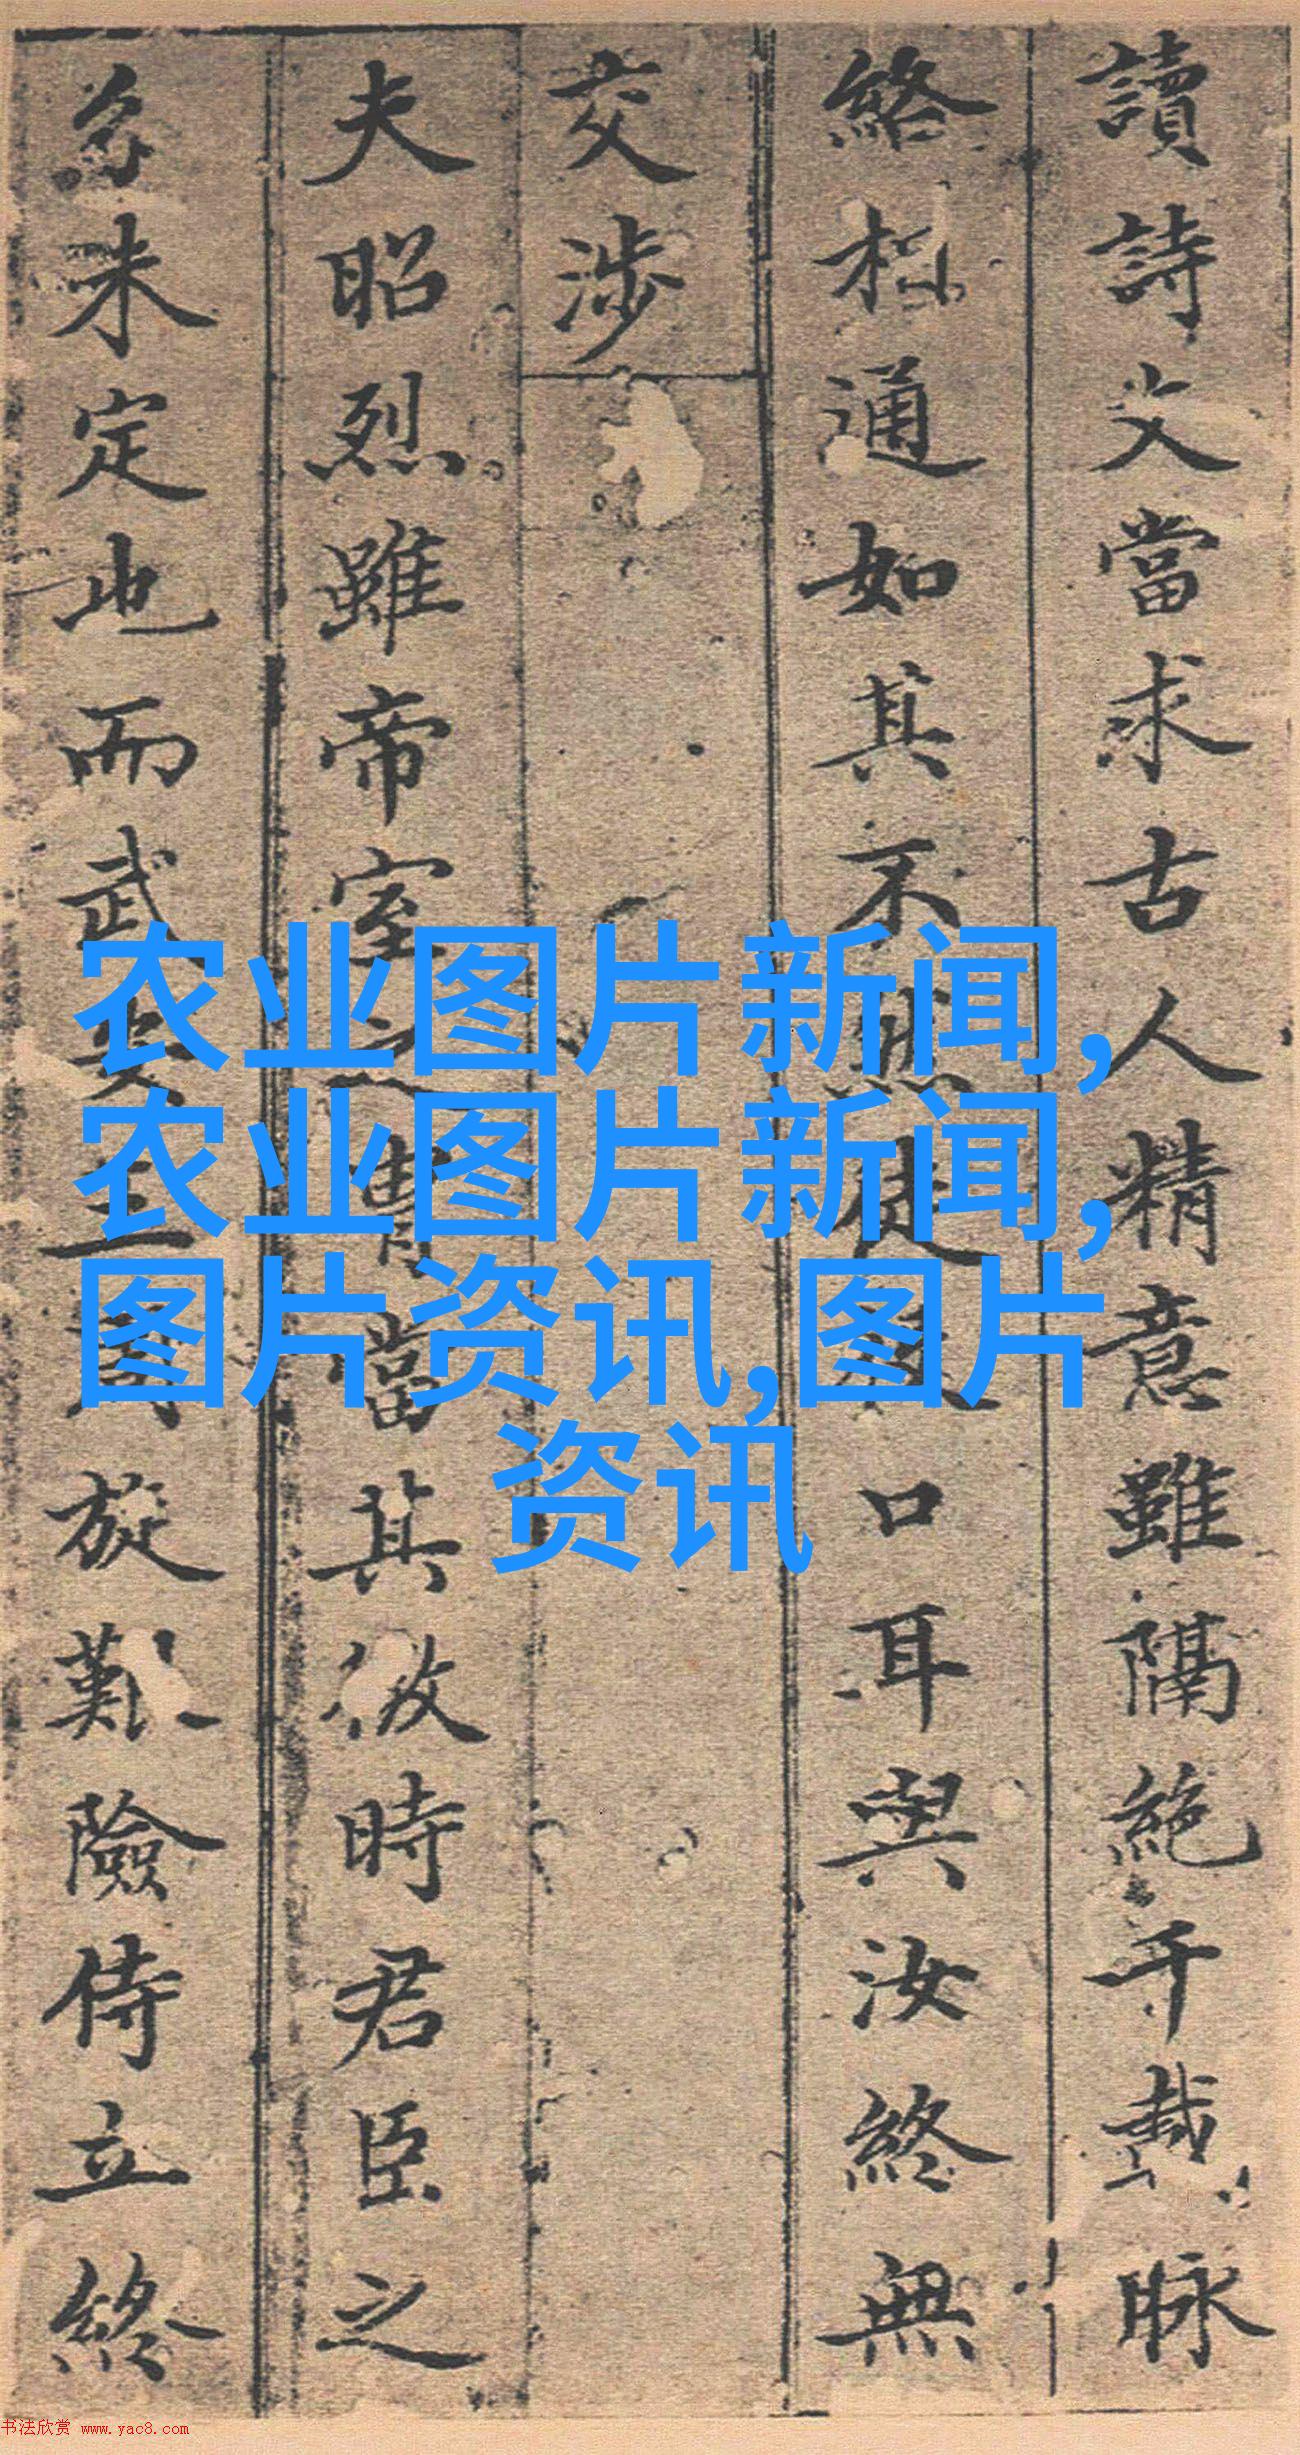 讀詩文當求古人精意雖隔絶千載脉
絡相通如其不然徒口耳與汝終無
交涉
夫昭烈雖帝室之冑當其時君臣之
分未定也而武安王周旋險侍立終
农业图片新闻,
农业图片新闻,
图片资讯,图片
资讯
书法欣赏 www.yac8.com